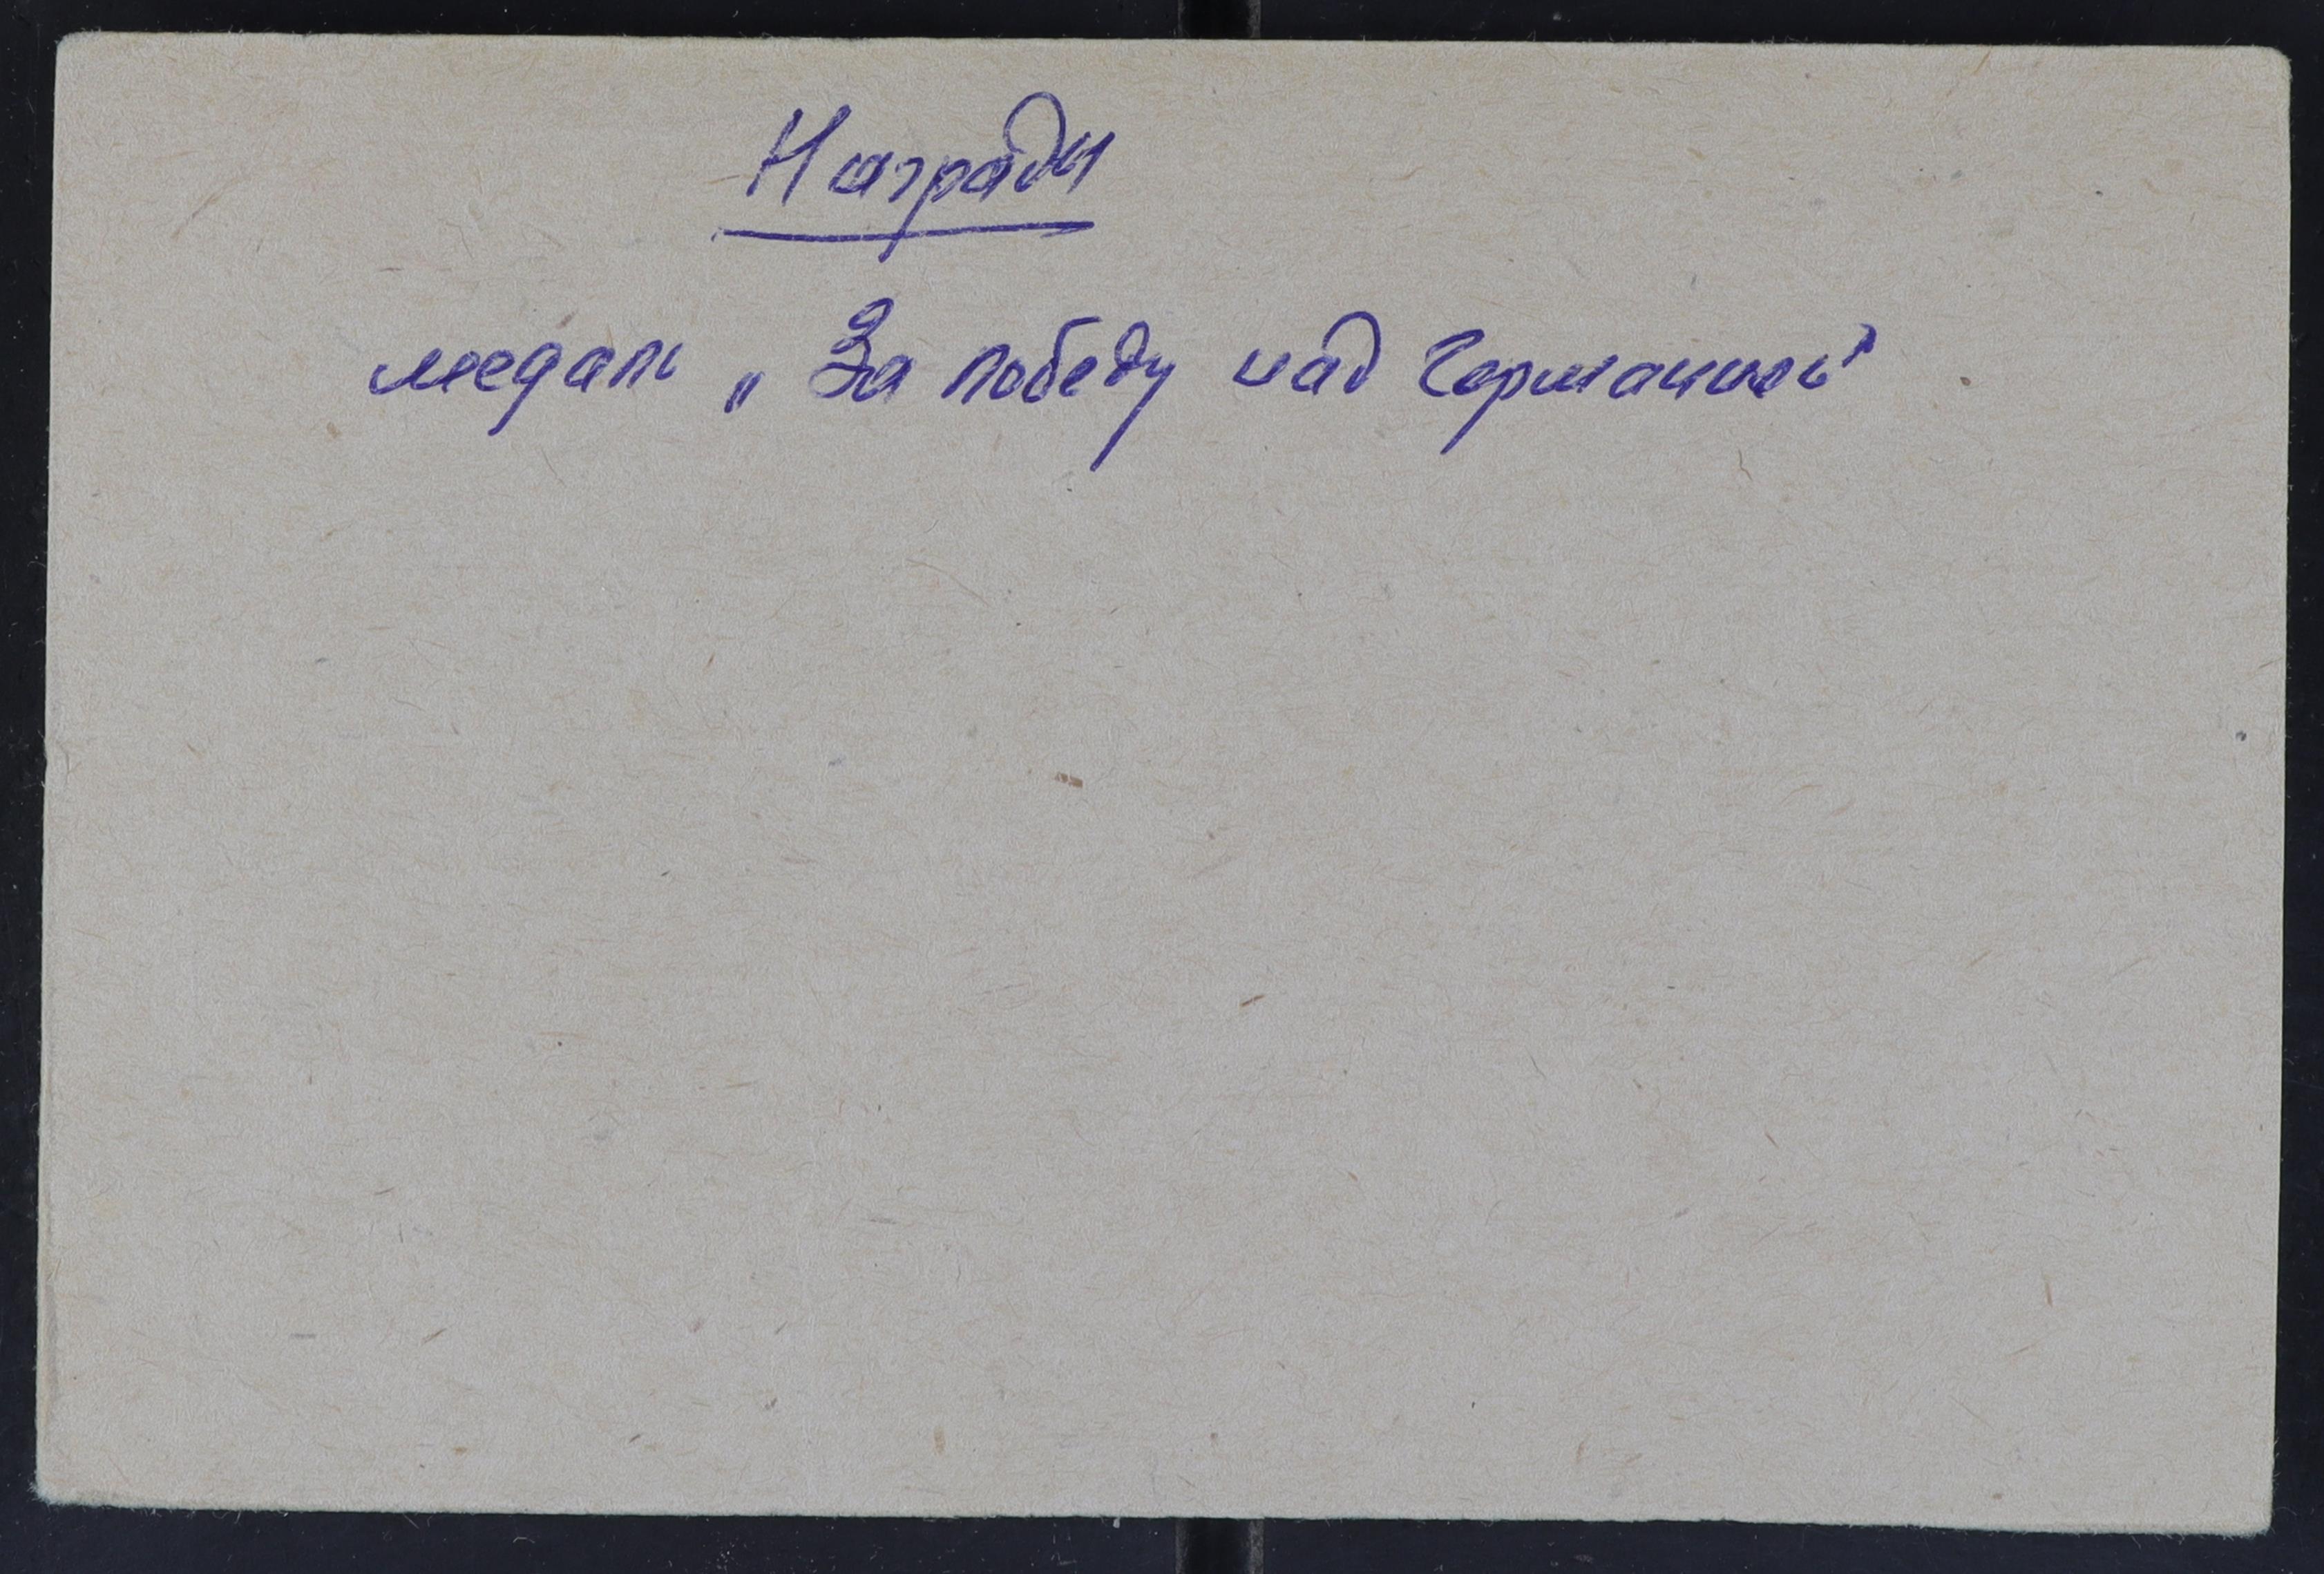 Награды
медаль „За победу над Германией"